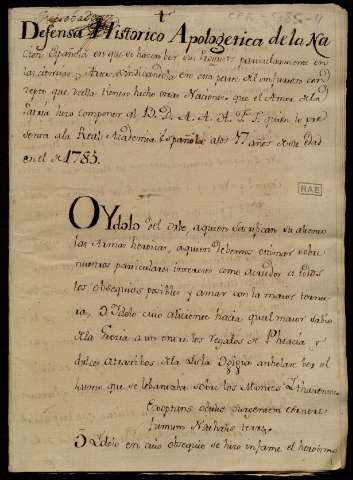 Reprobada
Defensa Historico Apologetica de la Na
cion Española en que se hacen ver sus progresos particularmente en
las ciencias y Artes vindicandola en esta parte del injurioso con
cepto que de ella tienen hecho otras Naciones que el Amor de la
Patria hizo componer al Br. D. A. A. A. F. P. quien lo pre
senta a la Real Academia Española a los 17 años de su edad
en el de 1785.
RAE
O Ydolo del Orbe, a quien sacrifican su aliento
las Armas heroicas, a quien debemos estimar sobre
nuestros particulares intereses como acredor a todos
los obsequios posibles y amar con la maior ternu
ra, O Ydolo cuio aliciente hacia que el maior sabio
de la Grecia a un en los regalos de Pheacia y
dulces atractivos de la Isla Ogigia anhelase ver el
humo que se lebantava sobre los Montes Ithacenses
Exoptans oculis surgentem cernere
fumum Nathalis terrae
O Ydolo en cuio obsequio se hizo infame el heroismo